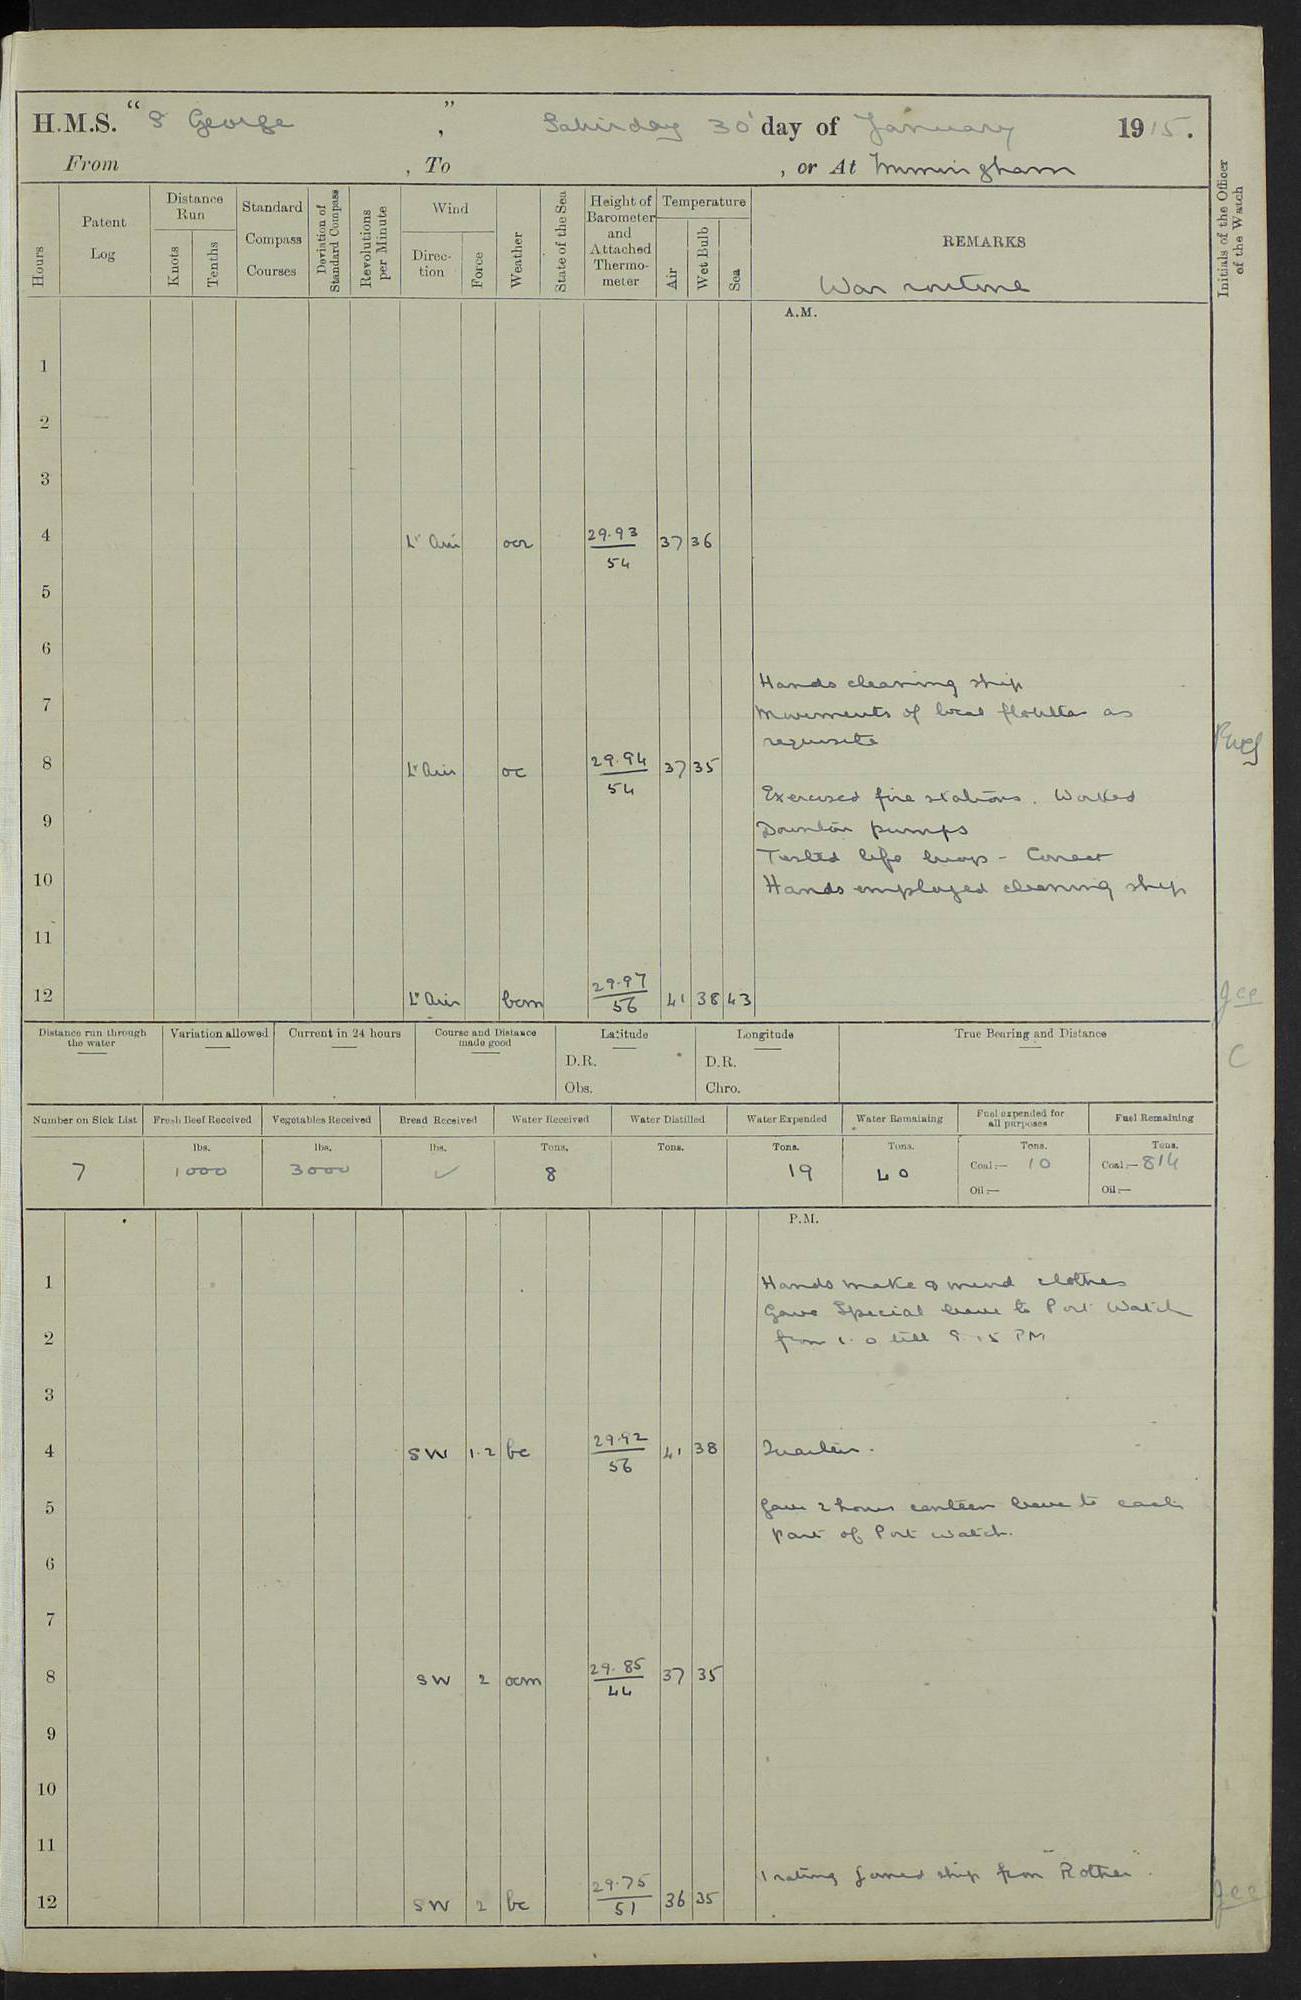 H.M.S. "S George", Saturday 30' day of January 1915.
From , To , or At Immingham
Hours
Patent Log
Distance Run
Knots
Tenths
Standard Compass Courses
Deviation of Standard Compass
Revolutions per Minute
Wind
Direction
Force
Weather
State of the Sea
Height of Barometer and Attached Thermometer
Temperature
Air
Wet Bulb
Sea
REMARKS
War routine
Initials of the Officer of the Watch
A.M.
1
2
3
4 Lt Air ocr 29.93 54 37 36
5
6
Hands cleaning ship
7 Movements of local flotilla as
requisite
8 Lt Air oc 29.94 54 37 35
Exercised fire stations. Worked
9 Downton pumps
Tested life buoys - Correct
10 Hands employed cleaning ship
11
12 Lt Air bcm 29.97 56 41 38 43
Distance run through the water
Variation allowed
Current in 24 hours
Course and Distance made good
Latitude
D.R.
Obs.
Longitude
D.R.
Chro.
True Bearing and Distance
C
Number on Sick List Fresh Beef Received Vegetables Received Bread Received Water Received Water Distilled Water Expended Water Remaining Fuel expended for all purposes Fuel Remaining
lbs. lbs. lbs. Tons. Tons. Tons. Tons. Tons. Tons.
7 1000 3000 ✓ 8 19 40 Coal:— 10 Coal:— 814
Oil:— Oil:—
P.M.
1 Hands make & mend clothes
Gave Special leave to Port Watch
2 from 1.0 till 9.15 PM
3
4 SW 1.2 bc 29.92 56 41 38 Quarters.
5 Gave 2 hours canteen leave to each
part of Port watch.
6
7
8 SW 2 ocm 29.85 44 37 35
9
10
11
1 rating joined ship from "Rother".
12 SW 2 bc 29.75 51 36 35